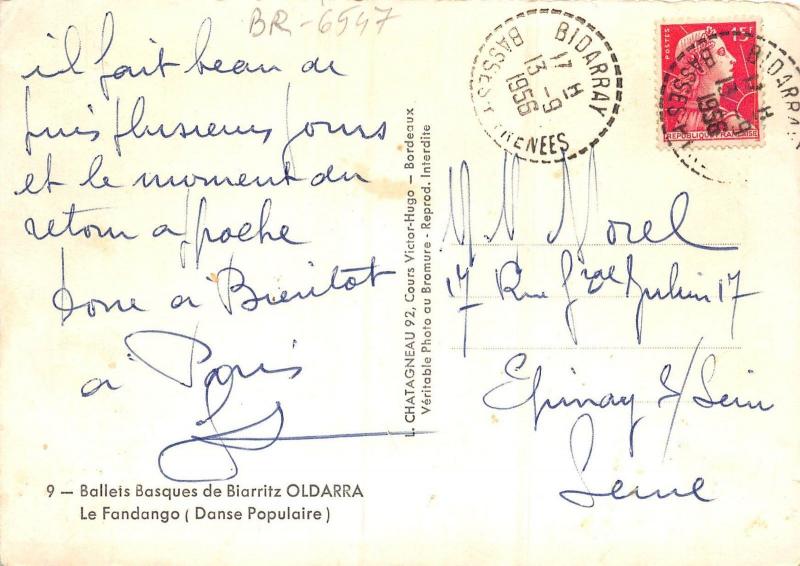 BR-6547
il fait beau de
puis plusieurs jours
et le moment du
retour approche
donc à Bientôt
à Paris
9 — Ballets Basques de Biarritz OLDARRA
Le Fandango ( Danse Populaire )
L. CHATAGNEAU 92, Cours Victor-Hugo — Bordeaux
Véritable Photo au Bromure - Reprod. Interdite
BIDARRAY
17 H
13 -9
1956
BASSES PYRENEES
POSTES 15F
REPUBLIQUE FRANÇAISE
BIDARRAY
17 H
13 -9
1956
BASSES
Morel
17 Rue Gral Julien 17
Epinay s/ Sein
Seine